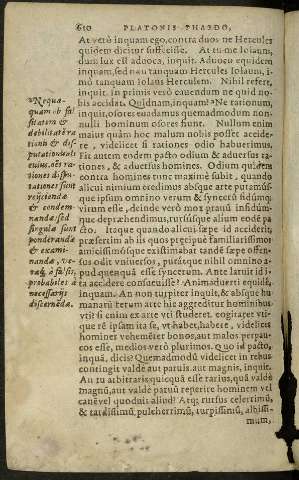 610 PLATONIS PHAEDO,
At verò inquam ego, contra duos ne Hercules
quidem dicitur suffecisse. At tu me Iolaum,
dum lux est aduoca, inquit. Aduoco equidem
inquam, sed nau tanquam Hercules Iolaum, i-
mò tanquam Iolaus Herculem. Nihil refert,
inquit. in primis verò cauendum ne quid no-
bis accidat. Quidnam, inquam? Ne rationum,
inquit, osores euadamus quemadmodum non-
nulli hominum osores sunt. Nullum enim
maius quàm hoc malum nobis posset accide-
re, videlicet si rationes odio habuerimus.
Fit autem eodem pacto odium & aduersus ra-
tiones, & aduersus homines. Odium quidem
contra homines tunc maximè subit, quando
alicui nimium credimus absque arte putamus-
que ipsum omnino verum & syncerū fidumq;
virum esse, deinde verò mox prauū infidum-
que deprehendimus, rursusque alium eodē pa-
cto. Itaque quando alicui sæpe id acciderit,
præsertim ab iis quos præcipuè familiarissimos
amicissimosque existimabat tandē sæpe offen-
sus odit vniuersos, putatque nihil omnino a-
pud quenquā esse syncerum. An te latuit id i-
ta accidere consueuisse? Animaduerti equidē,
inquam. An non turpiter inquit, & absque hu-
manarū rerum arte hic aggreditur hominibus
vti? si enim ex arte vti studeret. existimaret vti-
que rē ipsam ita se, vt habet, habere, videlicet
homines vehemēter bonos, aut malos perpau-
cos esse, medios verò plurimos. Quo id pacto,
inquā, dicis? Quemadmodū videlicet in rebus
contingit valdè aut paruis. aut magnis, inquit.
An tu arbitraris quicquā esse rarius, quā valdè
magnū, aut valdè paruū reperire hominem vel
canē vel quoduis aliud? Atq; rursus celerrimū,
& tardissimū, pulcherrimū, turpissimū, albissi-
mum,
Nequa-
quam ob fal
sitatem &
debilitatē ra
tionū & dis-
putationū ali
cuius, oēs ra
tiones dispu-
tationes sunt
reijciendæ
& condem-
nandæ: sed
singulæ sunt
ponderandæ
& exami-
nandæ, ve-
ræq; à falsis,
probabiles à
necessarijs
discernēda.